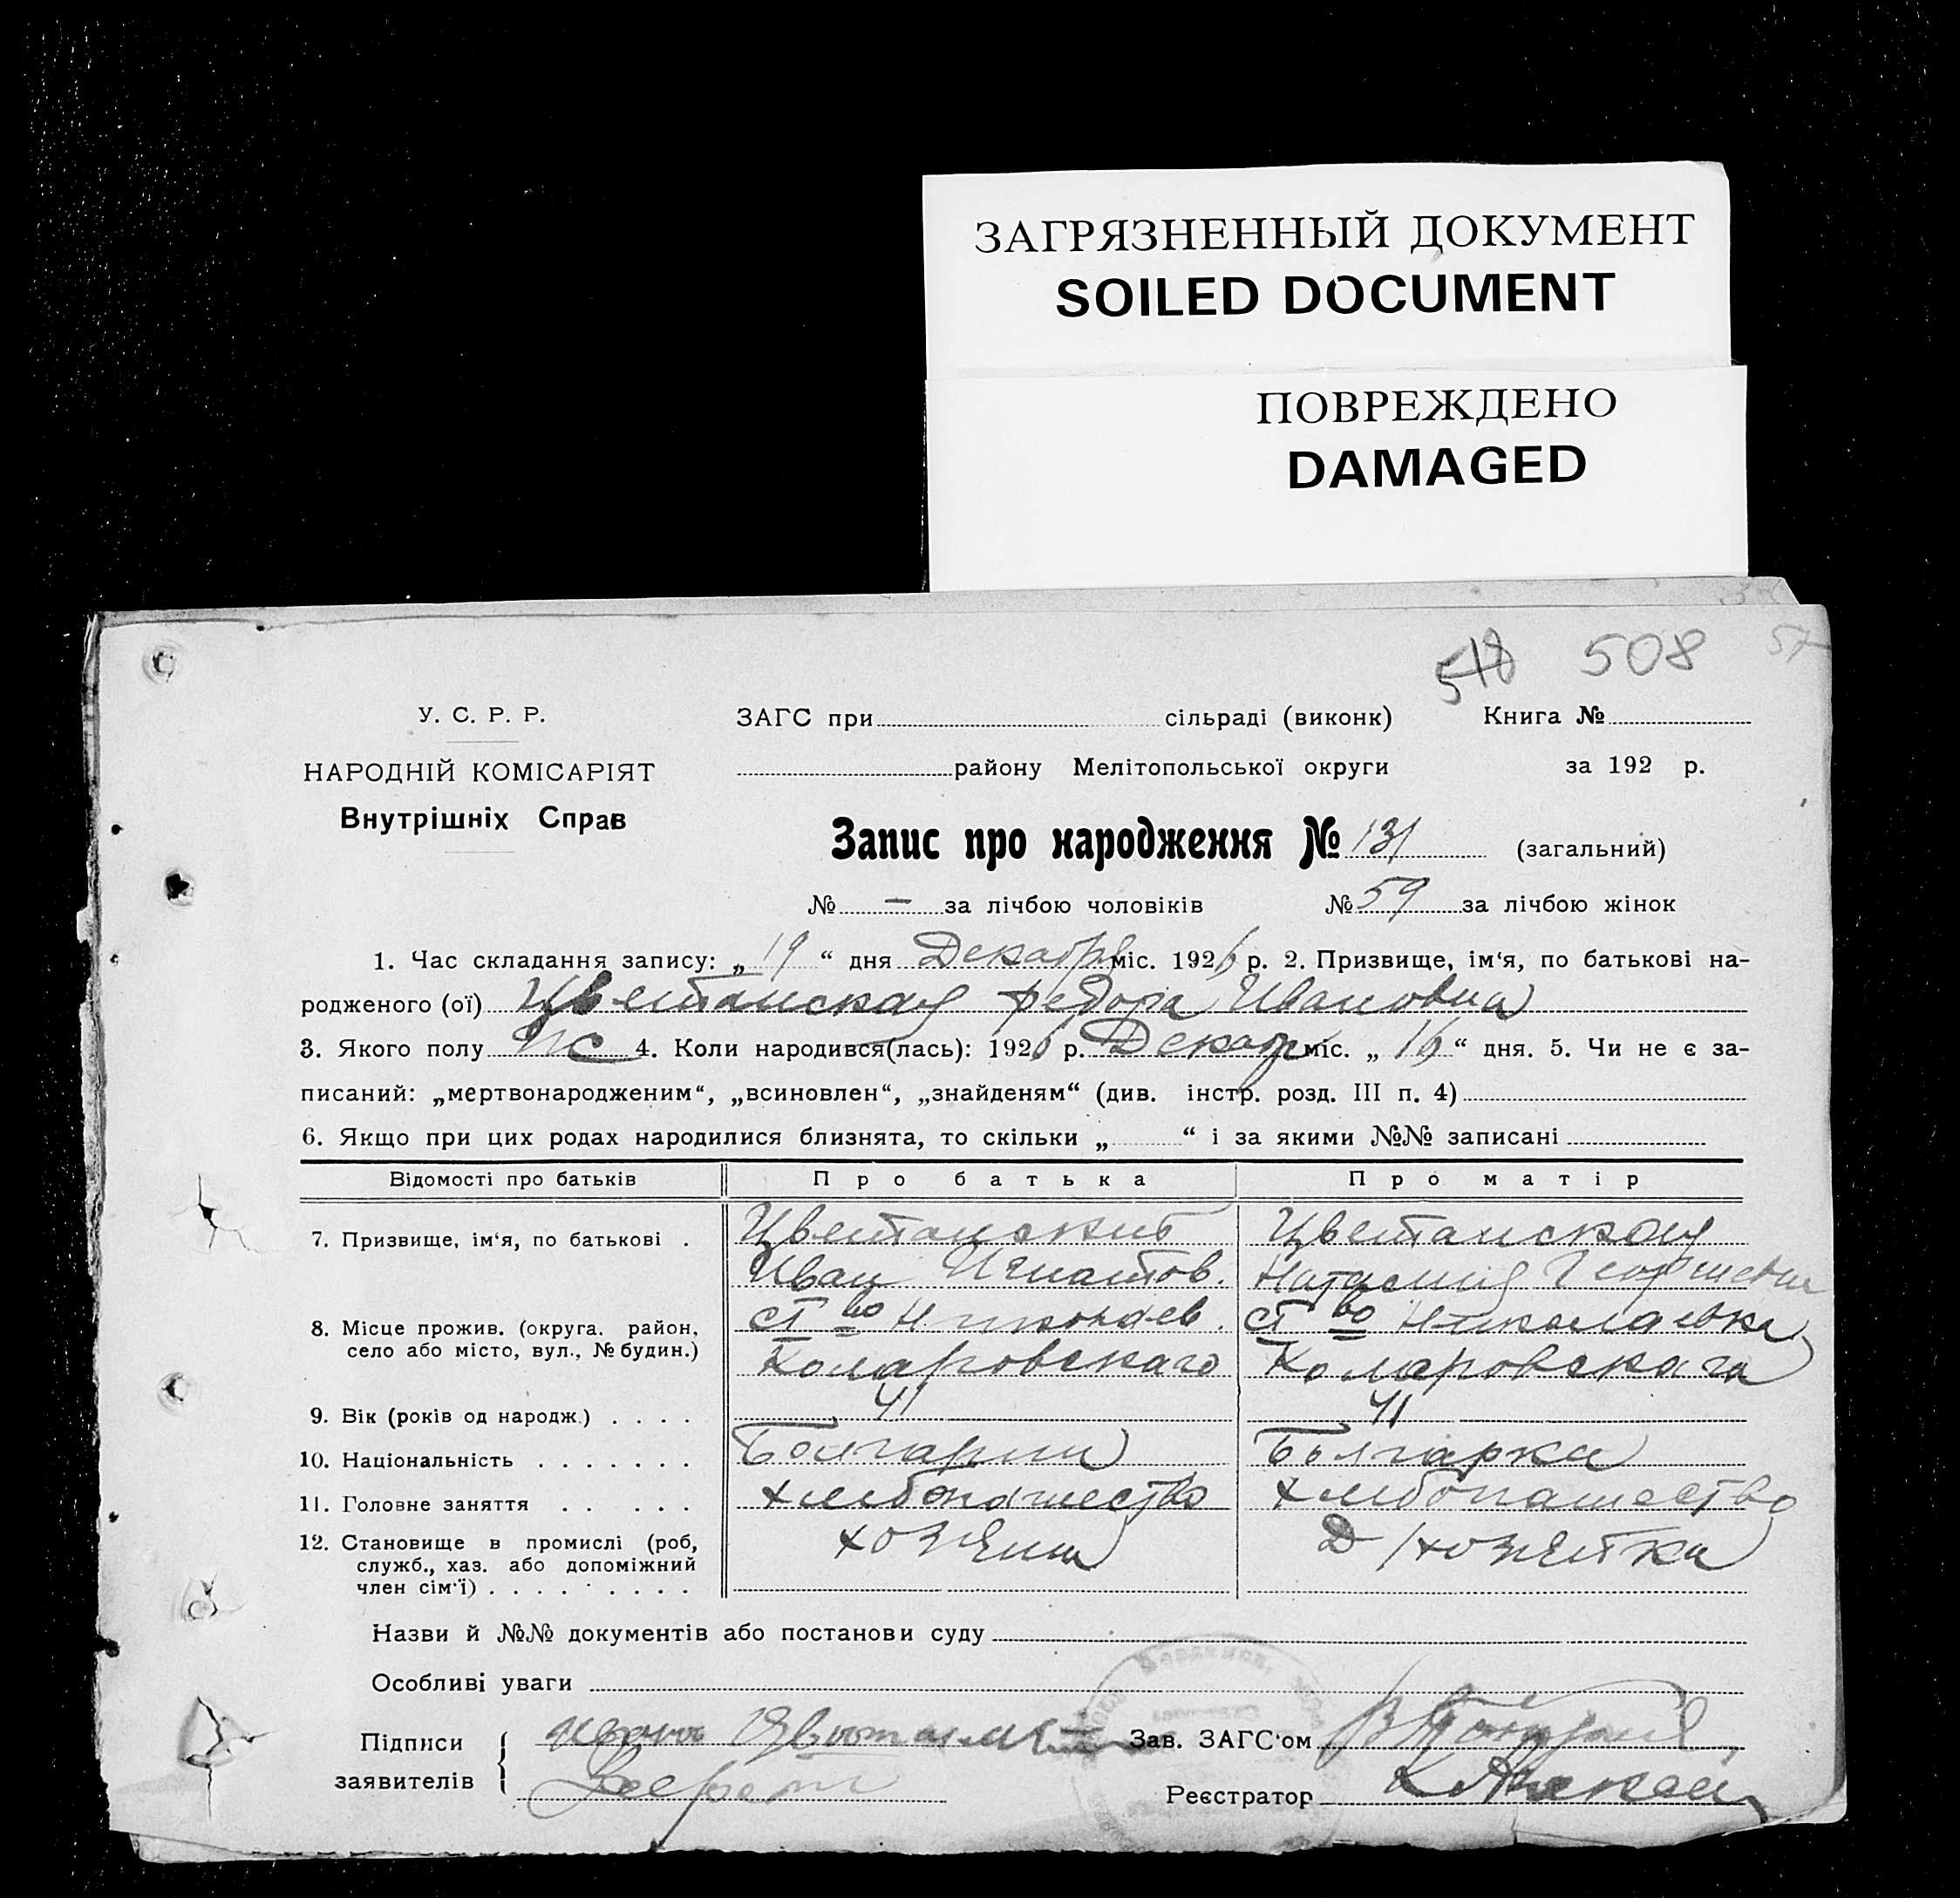 ЗАГРЯЗНЕННЫЙ ДОКУМЕНТ
SOILED DOCUMENT
ПОВРЕЖДЕНО
DAMAGED
518 508 57
У. С. Р. Р.
НАРОДНІЙ КОМІСАРІЯТ
Внутрішніх Справ
ЗАГС при сільраді (виконк) Книга №
району Мелітопольської округи за 192 р.
Запис про народження № 131 (загальний)
№ — за лічбою чоловіків № 59 за лічбою жінок
1. Час складання запису: „ 19 “ дня Декабря міс. 1926 р. 2. Призвище, ім‘я, по батькові на-
родженого (ої) Цветанская Федора Ивановна
3. Якого полу ж 4. Коли народився(лась): 1926 р. Декабр міс. „ 16 “ дня. 5. Чи не є за-
писаний: „мертвонародженим“, „всиновлен“, „знайденям“ (див. інстр. розд. III п. 4)
6. Якщо при цих родах народилися близнята, то скільки „ “ і за якими №№ записані
Відомості про батьків Про батька Про матір
7. Призвище, ім‘я, по батькові . Цветанский Цветанская
Иван Игнатов. Наталия Георгиевна
8. Місце прожив. (округа. район, ст во Николаев. ст во Николаевка
село або місто, вул., № будин.) Комаровскаго Комаровскаго
9. Вік (років од народж.) . . . . 41 41
10. Національність . . . . . . . Болгарин Болгарка
11. Головне заняття . . . . . хлебопашество хлебопашество
12. Становище в промислі (роб, хозяин д/хозяйка
служб., хаз. або допоміжний
член сім‘ї) . . . . . . . . .
Назви й №№ документів або постанови суду
Особливі уваги
Підписи
заявителів
Зав. ЗАГС‘ом
Реєстратор